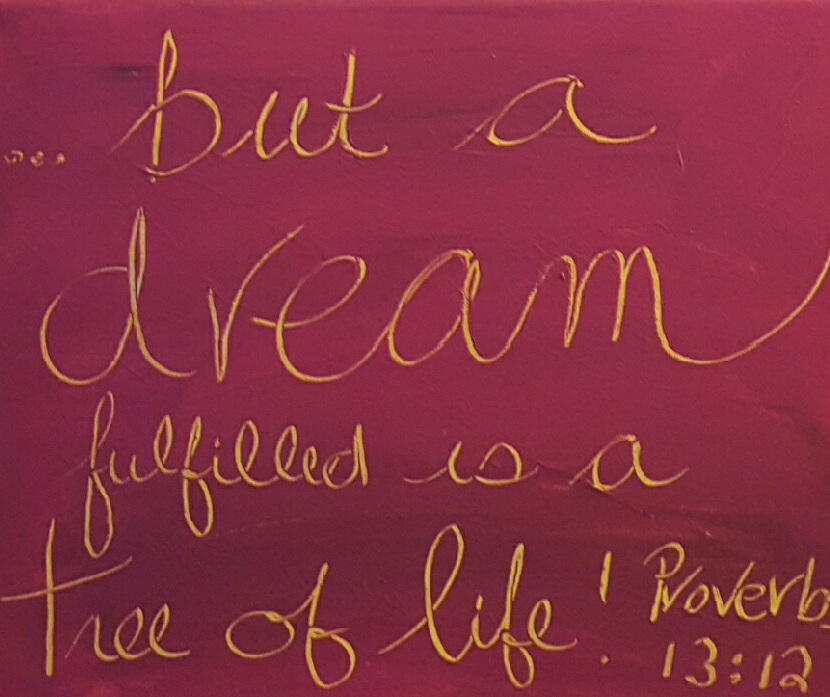 ... but a
dream
fulfilled is a
tree of life! Proverbs
13:12